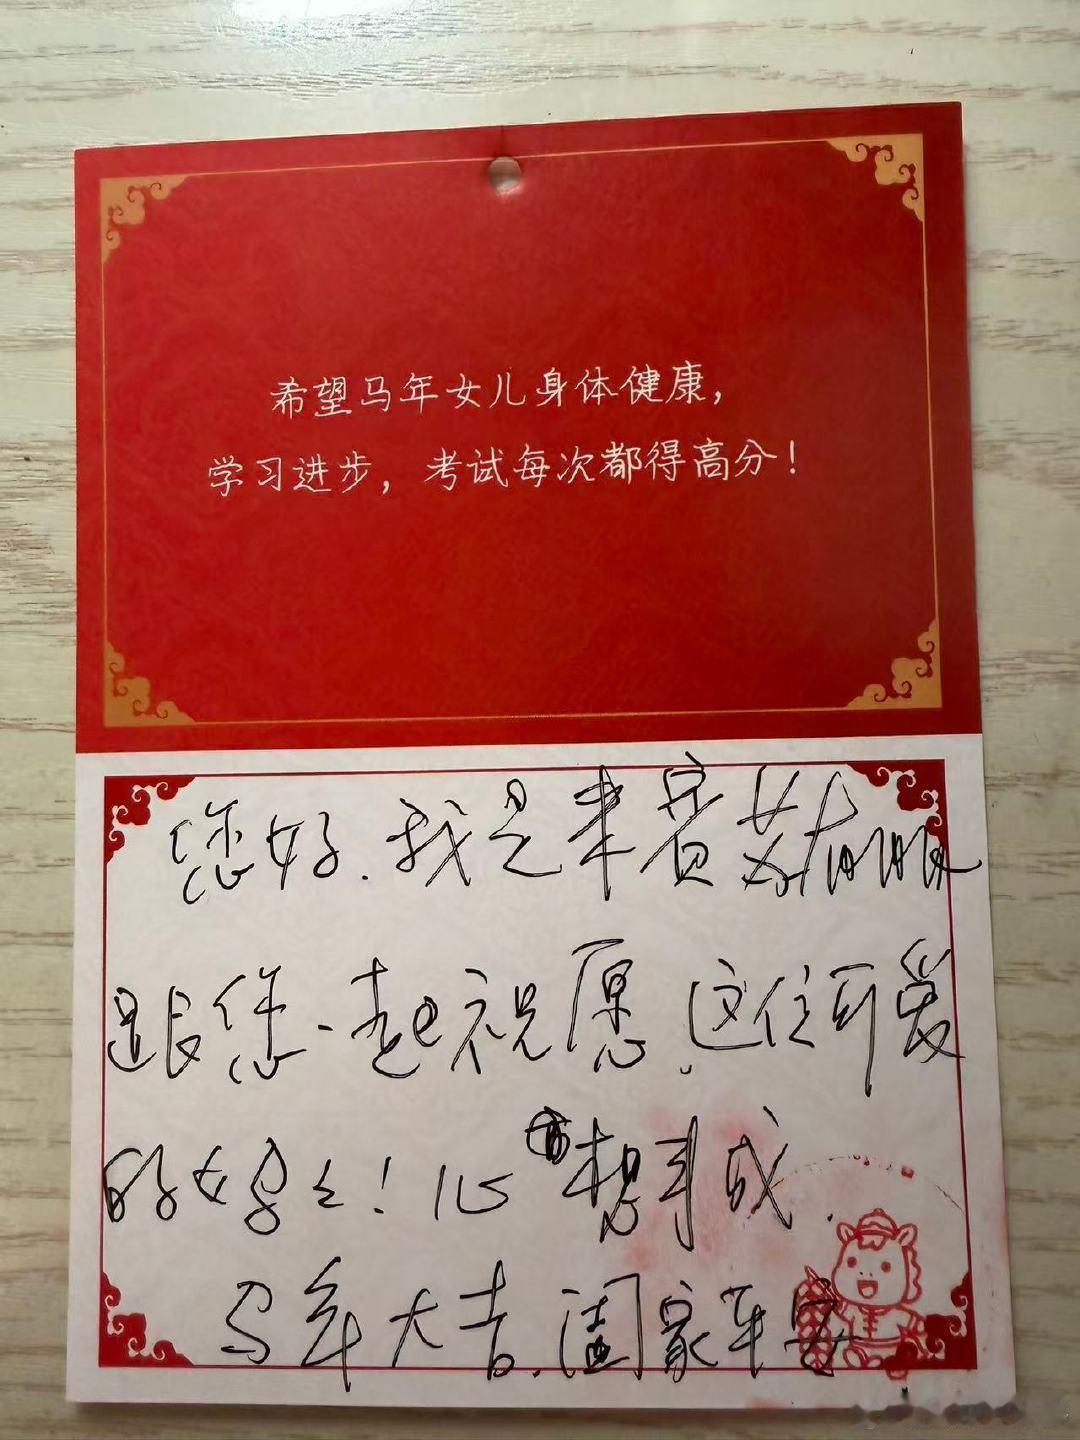 希望马年女儿身体健康，
学习进步，考试每次都得高分！
您好.我是来宾
跟您一起祝愿.这位可爱
的女 ！心想事成.
马年大吉.阖家平安